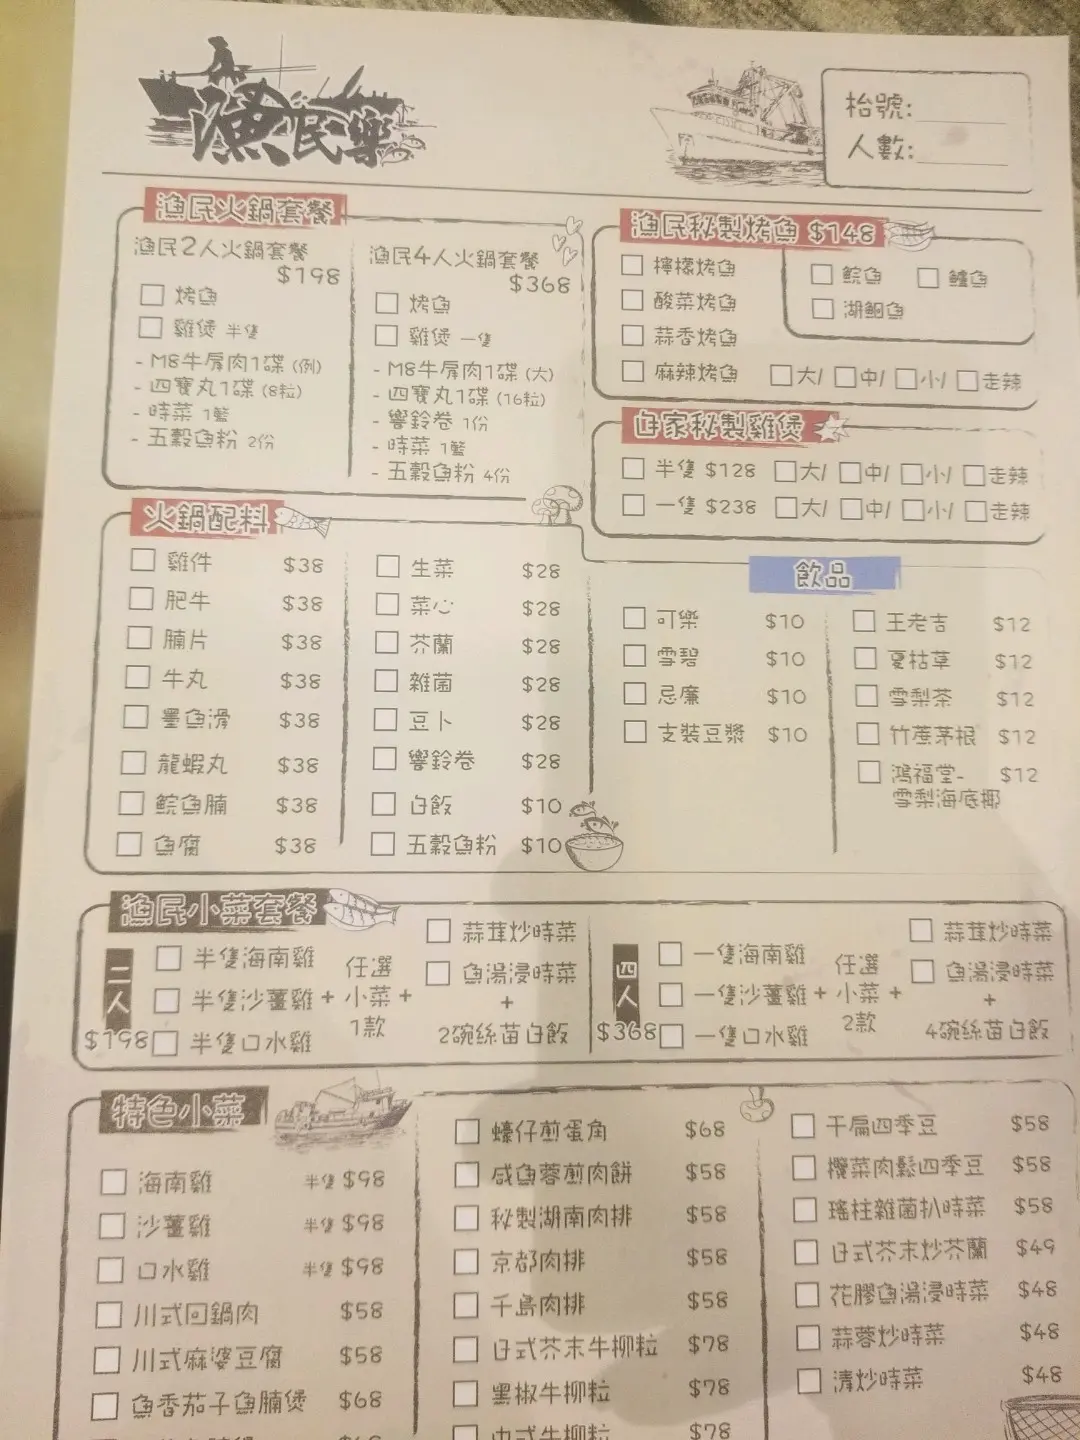 漁民樂
枱號:
人數:
漁民火鍋套餐
漁民2人火鍋套餐
$198
烤魚
雞煲 半隻
- M8牛肩肉1碟 (例)
- 四寶丸1碟 (8粒)
- 時菜 1籃
- 五穀魚粉 2份
漁民4人火鍋套餐
$368
烤魚
雞煲 一隻
- M8牛肩肉1碟 (大)
- 四寶丸1碟 (16粒)
- 響鈴卷 1份
- 時菜 1籃
- 五穀魚粉 4份
漁民秘製烤魚 $148
檸檬烤魚
酸菜烤魚
蒜香烤魚
麻辣烤魚
鯇魚 鱸魚
湖鮰魚
大/ 中/ 小/ 走辣
自家秘製雞煲
半隻 $128 大/ 中/ 小/ 走辣
一隻 $238 大/ 中/ 小/ 走辣
火鍋配料
雞件 $38
肥牛 $38
腩片 $38
牛丸 $38
墨魚滑 $38
龍蝦丸 $38
鯇魚腩 $38
魚腐 $38
生菜 $28
菜心 $28
芥蘭 $28
雜菌 $28
豆卜 $28
響鈴卷 $28
白飯 $10
五穀魚粉 $10
飲品
可樂 $10
雪碧 $10
忌廉 $10
支裝豆漿 $10
王老吉 $12
夏枯草 $12
雪梨茶 $12
竹蔗茅根 $12
鴻福堂- $12
雪梨海底椰
漁民小菜套餐
二人
$198
半隻海南雞
半隻沙薑雞
半隻口水雞
+
任選
小菜
1款
+
蒜茸炒時菜
魚湯浸時菜
+
2碗絲苗白飯
四人
$368
一隻海南雞
一隻沙薑雞
一隻口水雞
+
任選
小菜
2款
+
蒜茸炒時菜
魚湯浸時菜
+
4碗絲苗白飯
特色小菜
海南雞 半隻 $98
沙薑雞 半隻 $98
口水雞 半隻 $98
川式回鍋肉 $58
川式麻婆豆腐 $58
魚香茄子魚腩煲 $68
蠔仔煎蛋角 $68
咸魚蓉煎肉餅 $58
秘製湖南肉排 $58
京都肉排 $58
千島肉排 $58
日式芥末牛柳粒 $78
黑椒牛柳粒 $78
中式牛柳粒 $78
干扁四季豆 $58
欖菜肉鬆四季豆 $58
瑤柱雜菌扒時菜 $58
日式芥末炒芥蘭 $49
花膠魚湯浸時菜 $48
蒜蓉炒時菜 $48
清炒時菜 $48